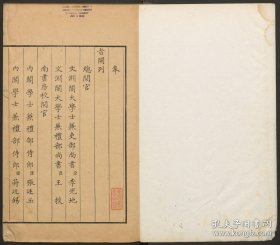 奉
旨開列
總閱官
文淵閣大學士兼吏部尚書臣李光地
文淵閣大學士兼禮部尚書臣王掞
南書房校閱官
內閣學士兼禮部侍郎臣張廷玉
內閣學士兼禮部侍郎臣蔣廷錫
孔夫子旧书网